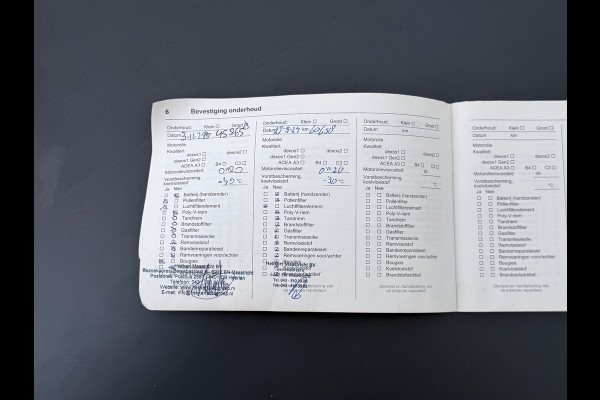 6 Bevestiging onderhoud
Onderhoud: Klein ☐ Groot
Datum km 45865
Motorolie
Kwaliteit:
dexos1 ☐ dexos2 ☐
dexos1 Gen2 ☐
ACEA A3 ☐ B4 ☐ C3 ☐
Motorolieviscositeit 0W20
Vorstbescherming,
koelvloeistof -30 °C
Ja Nee
Batterij (handzender)
Pollenfilter
Luchtfilterelement
Poly-V-riem
Tandriem
Brandstoffilter
Gasfilter
Transmissieolie
Remvloeistof
Bandenreparatieset
Remvoeringen voor/achter
Bougies
Website:
E-mail:
Onderhoud: Klein ☐ Groot ☐
Datum km
Motorolie
Kwaliteit:
dexos1 ☐ dexos2 ☐
dexos1 Gen2 ☐
ACEA A3 ☐ B4 ☐ C3 ☐
Motorolieviscositeit 0W20
Vorstbescherming,
koelvloeistof -30 °C
Ja Nee
Batterij (handzender)
Pollenfilter
Luchtfilterelement
Poly-V-riem
Tandriem
Brandstoffilter
Gasfilter
Transmissieolie
Remvloeistof
Bandenreparatieset
Remvoeringen voor/achter
Onderhoud: Klein ☐ Groot ☐
Datum km
Motorolie
Kwaliteit:
dexos1 ☐ dexos2 ☐
dexos1 Gen2 ☐
ACEA A3 ☐ B4 ☐ C3 ☐
Motorolieviscositeit W-
Vorstbescherming,
koelvloeistof °C
Ja Nee
☐ ☐ Batterij (handzender)
☐ ☐ Pollenfilter
☐ ☐ Luchtfilterelement
☐ ☐ Poly-V-riem
☐ ☐ Tandriem
☐ ☐ Brandstoffilter
☐ ☐ Gasfilter
☐ ☐ Transmissieolie
☐ ☐ Remvloeistof
☐ ☐ Bandenreparatieset
☐ ☐ Remvoeringen voor/achter
☐ ☐ Bougies
☐ ☐ Koelvloeistof
☐ ☐ Brandstofadditief
Stempel en handtekening van
de erkende reparateur
Onderhoud: Klein ☐ Groot ☐
Datum km
Motorolie
Kwaliteit:
dexos1 ☐ dexos2 ☐
dexos1 Gen2 ☐
ACEA A3 ☐ B4 ☐ C3 ☐
Motorolieviscositeit W-
Vorstbescherming,
koelvloeistof °C
Ja Nee
☐ ☐ Batterij (handzender)
☐ ☐ Pollenfilter
☐ ☐ Luchtfilterelement
☐ ☐ Poly-V-riem
☐ ☐ Tandriem
☐ ☐ Brandstoffilter
☐ ☐ Gasfilter
☐ ☐ Transmissieolie
☐ ☐ Remvloeistof
☐ ☐ Bandenreparatieset
☐ ☐ Remvoeringen voor/achter
☐ ☐ Bougies
☐ ☐ Koelvloeistof
☐ ☐ Brandstofadditief
Stempel en handtekening van
de erkende reparateur